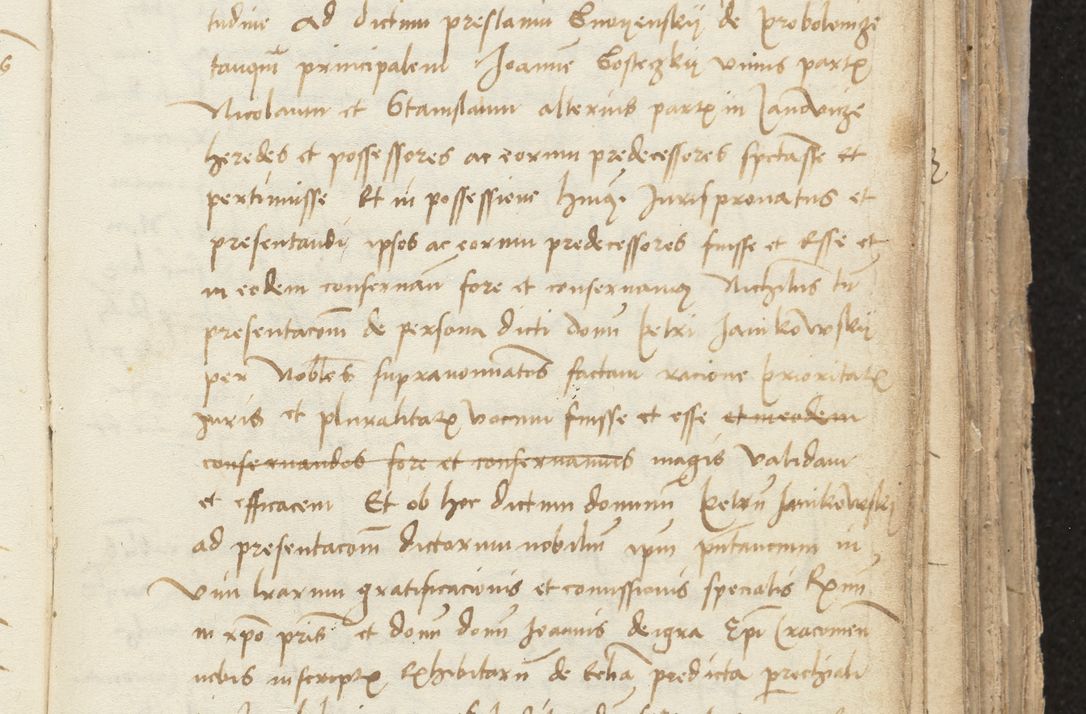 tudine Ad dictum preslaum Gnoyenskij de Probolowicze
tanquam principalem Joannē Gosteczkij unius partis
Nicolaum et Stanislaum alterius partis in Jandovicze
heredes et possessores ac eorum predecessores spectasse et
pertinuisse Et in possessione huiusmodi Jurispronatus et
presentandi ipsos ac eorum predecessores fuisse et Esse et
in eodem conservandū fore et conservamus Nichilominus tn̄
presentacom̄ de persona dicti domī Petri Janikowskij
per Nobiles supranominatos factam racione prioritatis
Juris et pluralitatis vocum fuisse et esse et in eodem
conservandos fore et conservamus magis validam
et efficacem Et ob hoc dictum dominum Petrū Janikowskij
ad presentacom̄ dictorum nobiliū ipm̄ pn̄tancium in
vim lrarum gratificacionis et comissionis specialis Rx̄mi
in xp̄o pris et domī domī Joannis dei gra Epī Cracovien
nobis inscriptis Exhibitarū de Ecclīa predicta parrochiali